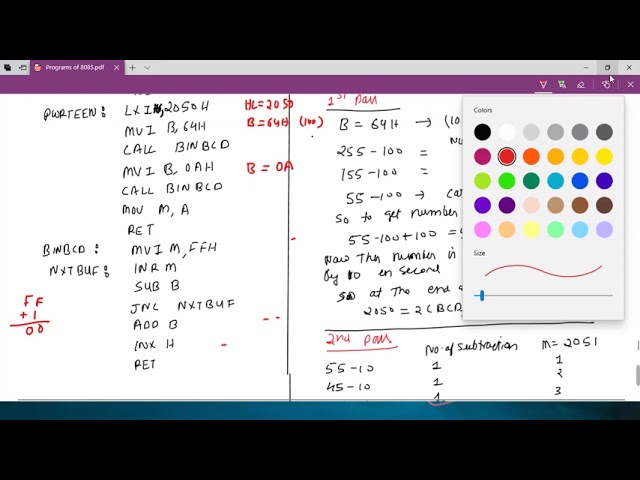 Programs of 8085.pdf
PWRTEEN: LXI H, 2050H HL=2050
MVI B, 64H B=64H (100)
CALL BINBCD
MVI B, 0AH B = 0A
CALL BINBCD
MOV M, A
RET
BINBCD: MVI M, FFH
NXTBUF: INR M
SUB B
JNC NXTBUF
ADD B
INX H
RET
FF
+1
00
1st pass
B = 64H → (10
255-100 =
155-100 =
55-100 →
So to get number
55-100+100 =
Now this number is
by 10 in second
So at the end
2050 = 2 (BCD
2nd pass No. of subtraction M = 2051
55-10 1 1
45-10 1 2
1 3
Colors
Size